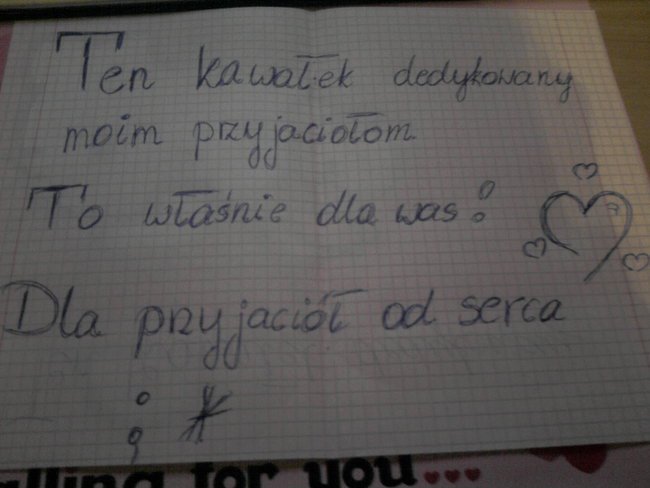 Ten kawałek dedykowany
moim przyjaciołom
To właśnie dla was!
Dla przyjaciół od serca
;*
alling for you...